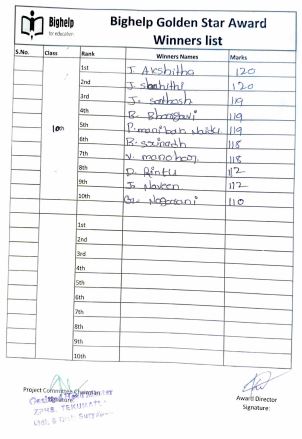 Bighelp
for education
Bighelp Golden Star Award
Winners list
S.No. Class Rank Winners Names Marks
10th
1st J. Akshitha 120
2nd J. Sbahithi 120
3rd J. Sathosh 119
4th B. Bhargavi 119
5th P. manikan Naidu 119
6th R. Srinadh 118
7th V. manohar 118
8th D. Rintu 112
9th J. Naveen 112
10th G. Nagarani 110
1st
2nd
3rd
4th
5th
6th
7th
8th
9th
10th
Project Committee Chairman
Signature:
Award Director
Signature: